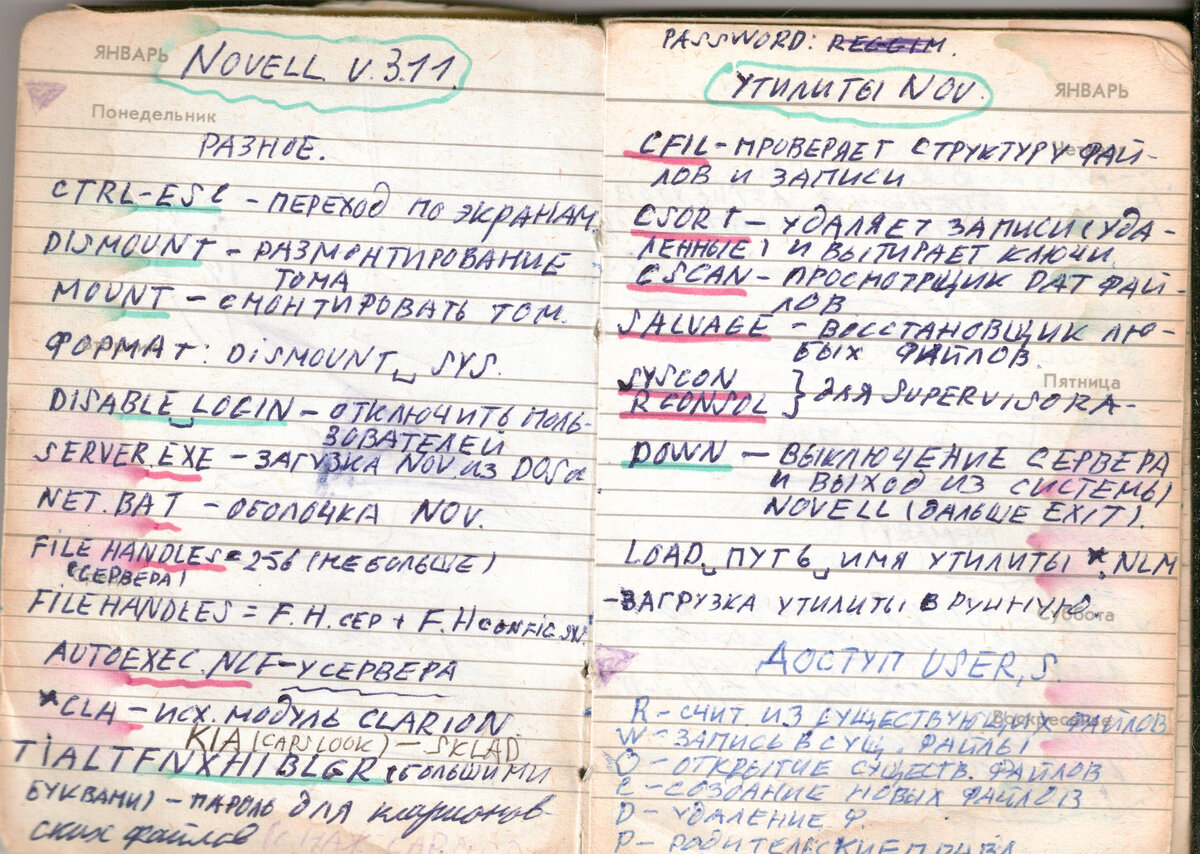 ЯНВАРЬ
NOVELL V.3.11
Понедельник
РАЗНОЕ.
CTRL-ESC - ПЕРЕХОД ПО ЭКРАНАМ
DISMOUNT - РАЗМОНТИРОВАНИЕ
ТОМА
MOUNT - СМОНТИРОВАТЬ ТОМ.
ФОРМАТ: DISMOUNT␣SYS.
DISABLE␣LOGIN - ОТКЛЮЧИТЬ ПОЛЬ-
ЗОВАТЕЛЕЙ
SERVER.EXE - ЗАГУЗКА NOV. ИЗ DOSа
NET.BAT - ОБОЛОЧКА NOV.
FILE HANDLES = 256 (НЕ БОЛЬШЕ)
(СЕРВЕРА)
FILEHANDLES = F.H.СЕР + F.H CONFIG.SYS
AUTOEXEC.NCF - У СЕРВЕРА
*CLA - ИСХ. МОДУЛЬ CLARION
KIA (CAPSLOOK) - SKLAD
TIALTFNXHIBLGR (БОЛЬШИМИ
БУКВАМИ) - ПАРОЛЬ ДЛЯ кларионов-
ских файлов
PASSWORD: REGGIM.
УТИЛИТЫ NOV.
ЯНВАРЬ
CFIL - ПРОВЕРЯЕТ СТРУКТУРУ ФАЙ-
ЛОВ И ЗАПИСИ
CSORT - УДАЛЯЕТ ЗАПИСИ (УДА-
ЛЕННЫЕ) И ВЫТИРАЕТ КЛЮЧИ
CSCAN - ПРОСМОТРЩИК DAT ФАЙ-
ЛОВ
SALVAGE - ВОССТАНОВЩИК ЛЮ-
БЫХ ФАЙЛОВ.
Пятница
SYSCON
RCONSOL } ДЛЯ SUPERVISORA-
DOWN - ВЫКЛЮЧЕНИЕ СЕРВЕРА
И ВЫХОД ИЗ СИСТЕМЫ
NOVELL (ДАЛЬШЕ EXIT).
LOAD␣ПУТЬ␣ИМЯ УТИЛИТЫ *.NLM
- ЗАГРУЗКА УТИЛИТЫ В РУЧНУЮ.
Суббота
ДОСТУП USER,S.
Воскресенье
R - СЧИТ. ИЗ СУЩЕСТВУЮЩИХ ФАЙЛОВ
W - ЗАПИСЬ В СУЩ. ФАЙЛЫ
O - ОТКРЫТИЕ СУЩЕСТВ. ФАЙЛОВ
C - СОЗДАНИЕ НОВЫХ ФАЙЛОВ
D - УДАЛЕНИЕ Ф.
P - РОДИТЕЛЬСКИЕ ПРАВА